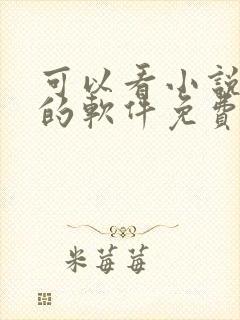 可以看小說
的軟件免費
米莓莓